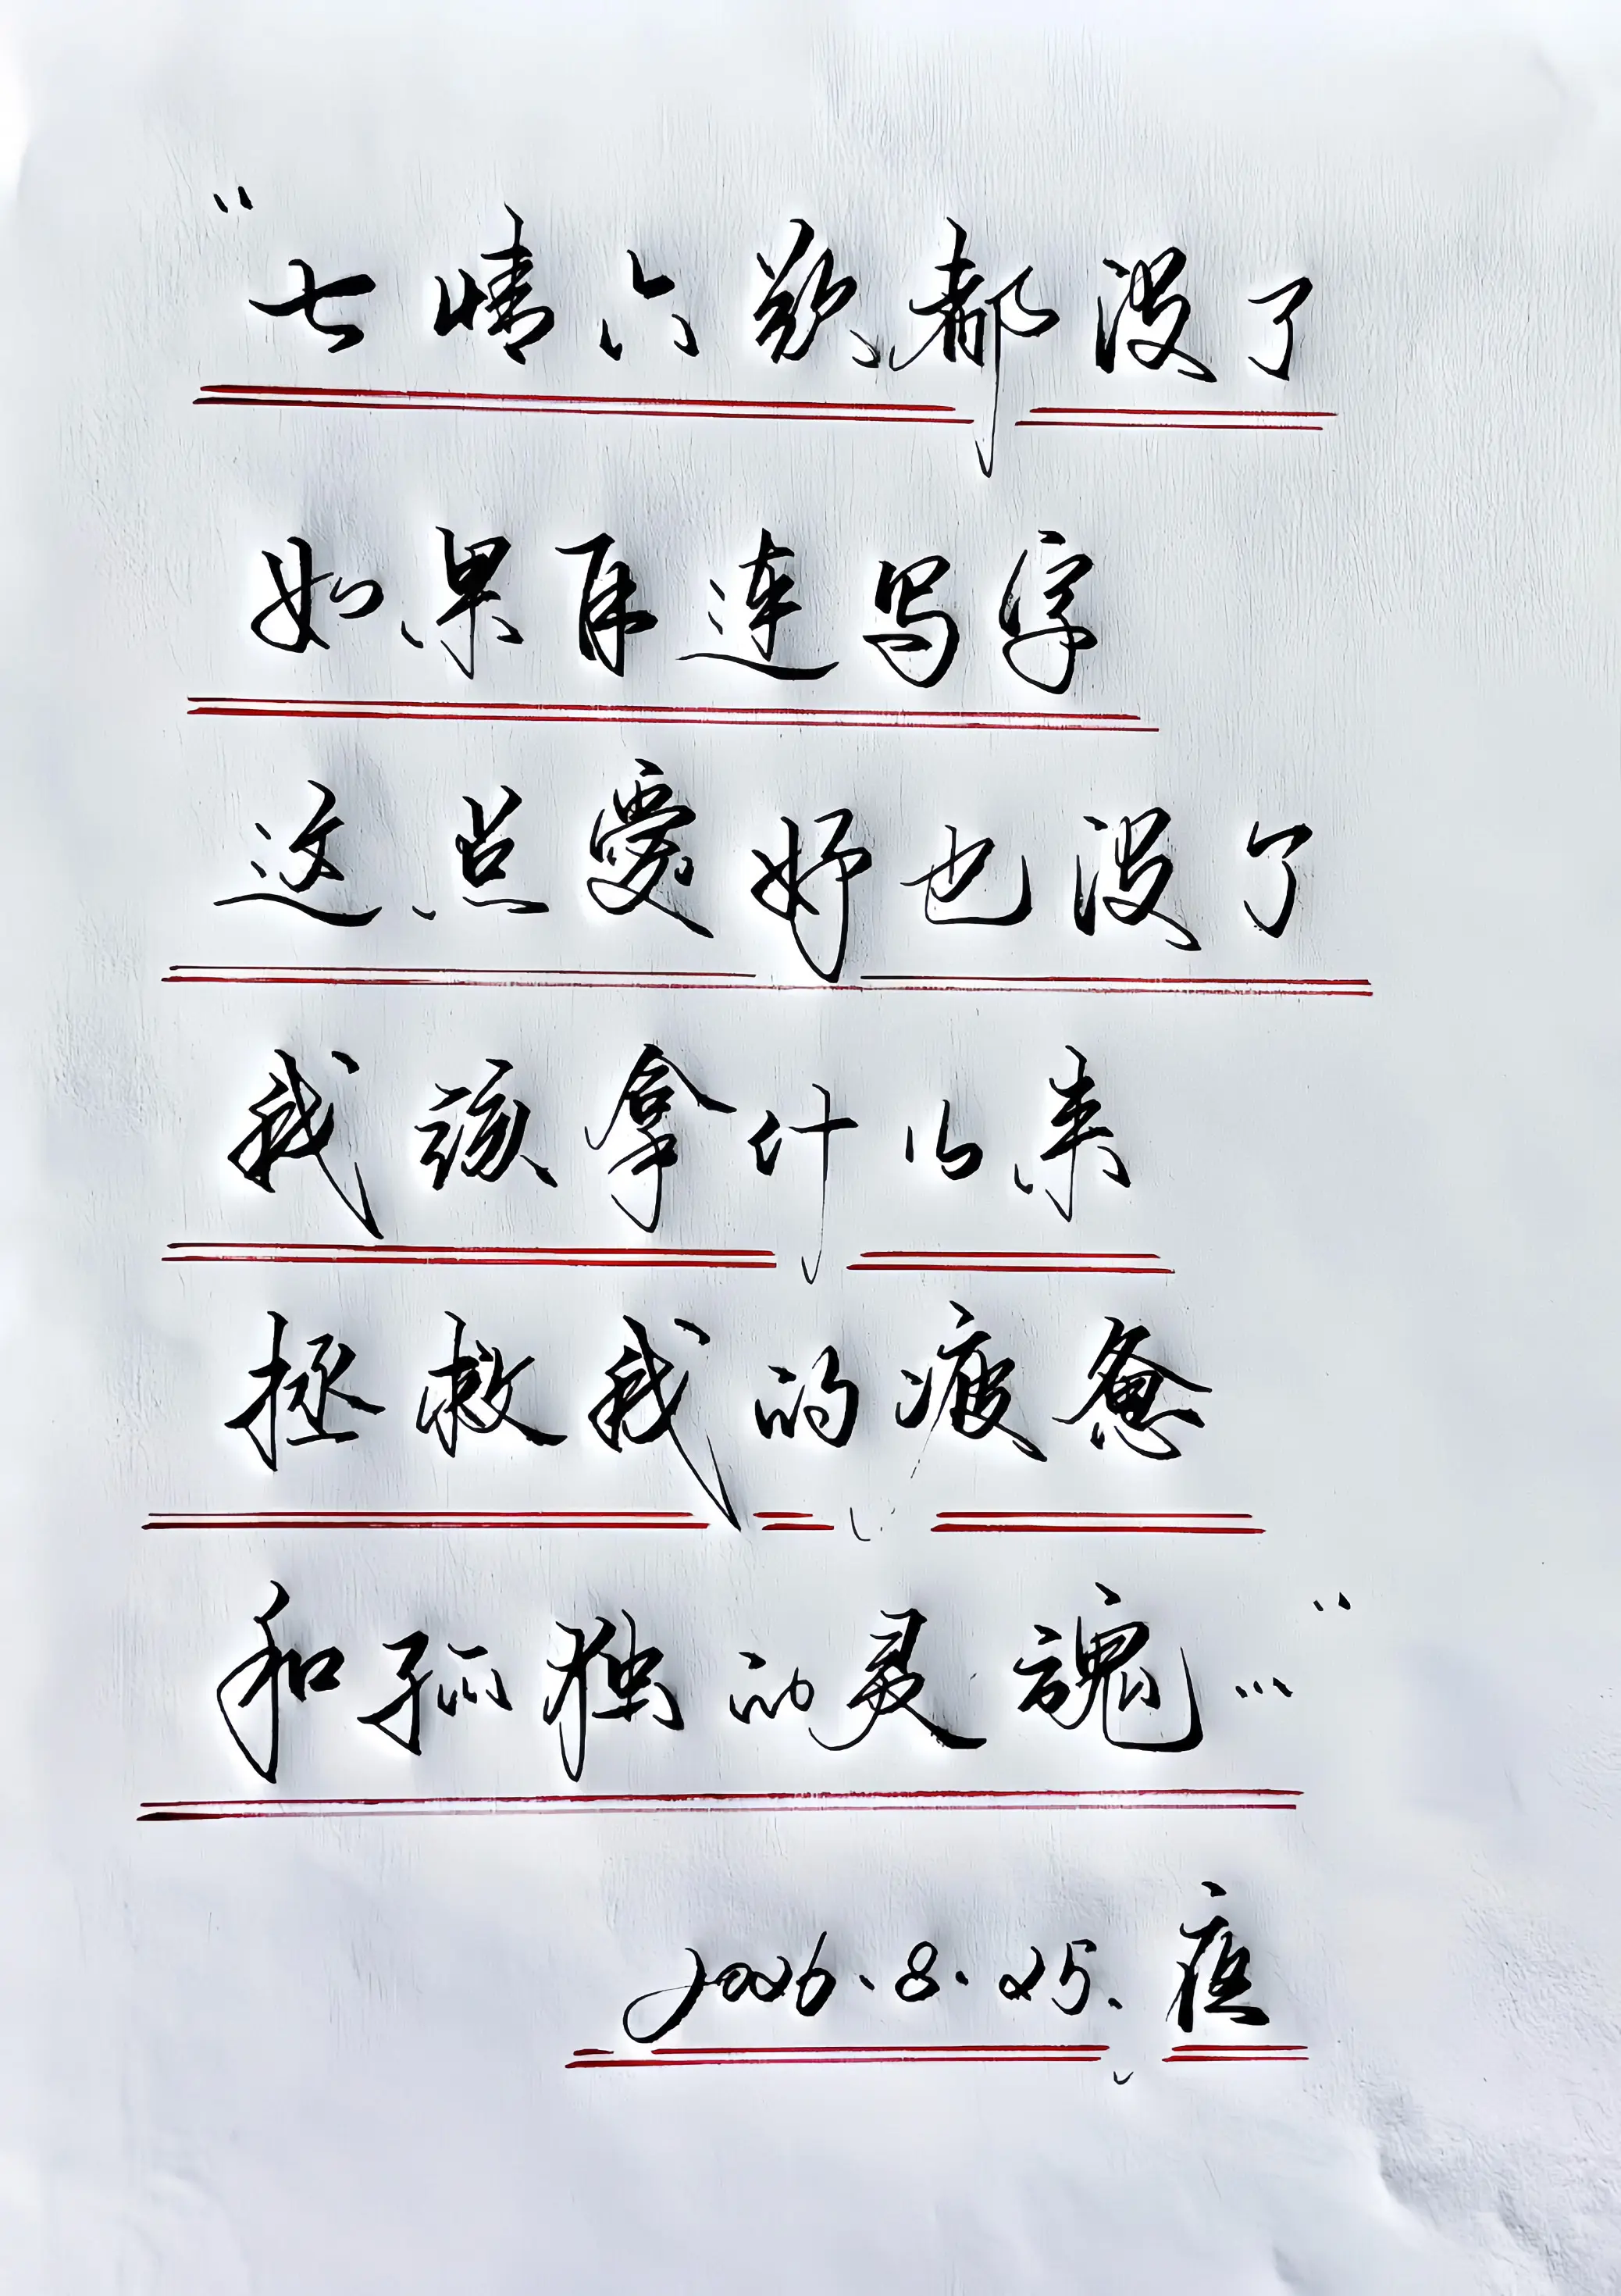 “七情六欲都没了
如果再连写字
这点爱好也没了
我该拿什么来
拯救我的疲惫
和孤独的灵魂…”
2026.8.25.